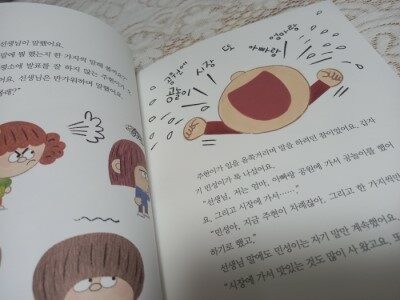 선생님이 말했어요.
말에 뭘 했는지 한 가지씩 말해 볼까요?"
평소에 발표를 잘 하지 않는 주현이가
어요. 선생님은 반가워하며 말했어요.
볼래?"
공원에
공놀이
시장
또
아빠랑
엄마랑
주현이가 입을 움쭉거리며 말을 하려던 참이었어요. 갑자
기 민성이가 툭 나섰어요.
"선생님, 저는 엄마, 아빠랑 공원에 가서 공놀이를 했어
요. 그리고 시장에 가서……."
"민성아, 지금 주현이 차례잖아. 그리고 한 가지씩만
하기로 했고."
선생님 말에도 민성이는 자기 말만 계속했어요.
"시장에 가서 맛있는 것도 많이 사 왔고요. 또